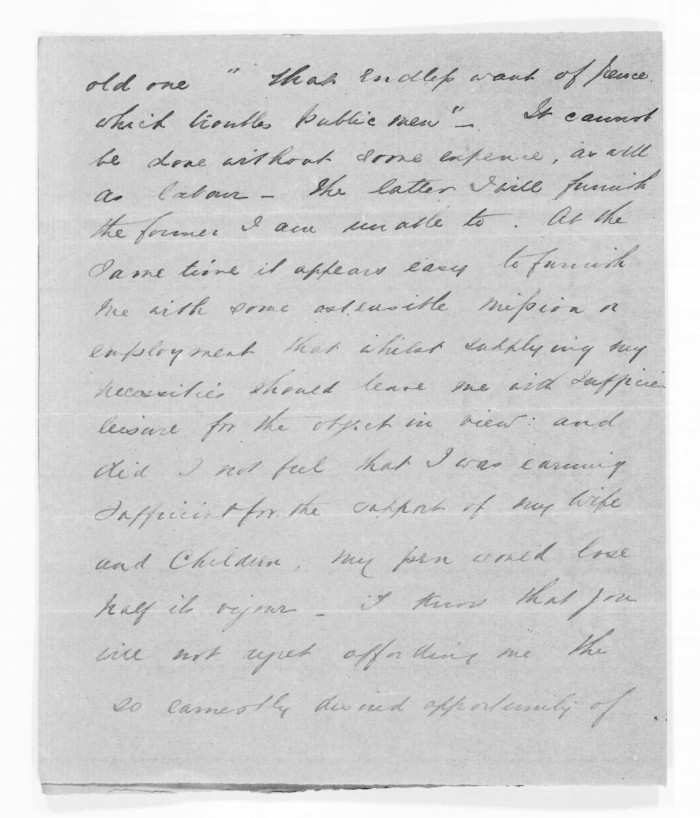 old one " that endless want of pence
which troubles public men" – It cannot
be done without some expence, as well
as labour – The latter I will furnish
the former I am unable to. At the
same time it appears easy to furnish
me with some ostensible mission or
employment that whilst supplying my
necessities should leave me with sufficien
leisure for the object in view: and
did I not feel that I was earning
sufficient for the support of my wife
and Children, my pen would lose
half its vigour – I know that you
will not regret affording me the
so earnestly desired opportunity of